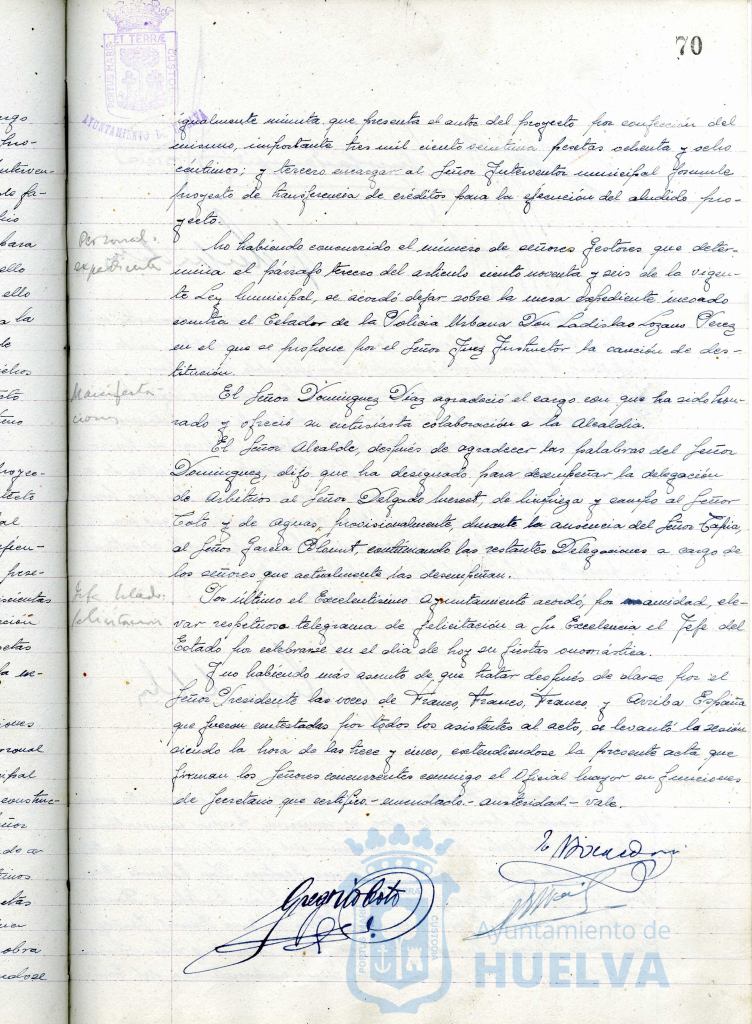 70
PORTUS MARIS ET TERRÆ CUSTODIA
AYUNTAMIENTO
igualmente minuta que presenta el autor del proyecto por confección del
mismo, importante tres mil ciento veintiuna pesetas ochenta y ocho
céntimos; y tercero encargar al Señor Interventor municipal formule
proyecto de transferencia de créditos para la ejecución del aludido pro-
yecto.
Personal.
expediente
No habiendo concurrido el número de señores Gestores que deter-
mina el párrafo tercero del artículo ciento noventa y seis de la vigen-
te Ley Municipal, se acordó dejar sobre la mesa expediente incoado
contra el Celador de la Policía Urbana Don Ladislao Lozano Perez
en el que se propone por el Señor Juez Instructor la sanción de des-
titución.
Manifesta-
ciones
El Señor Dominguez Diaz agradeció el cargo con que ha sido hon-
rado y ofreció su entusiasta colaboración a la Alcaldía.
El Señor Alcalde, después de agradecer las palabras del Señor
Dominguez, dijo que ha designado para desempeñar la delegación
de Arbitrios al Señor Delgado, de limpieza y campo al Señor
Coto y de aguas, provisionalmente, durante la ausencia del Señor Tapia,
al Señor García, continuando las restantes Delegaciones a cargo de
los señores que actualmente las desempeñan.
Jefe Estado.
felicitacion
Por último el Excelentísimo Ayuntamiento acordó, por unanimidad, ele-
var respetuoso telegrama de felicitación a Su Excelencia el Jefe del
Estado por celebrarse en el dia de hoy su fiesta onomástica.
Y no habiendo más asunto de que tratar después de darse por el
Señor Presidente las voces de Franco, Franco, Franco y Arriba España
que fueron contestadas por todos los asistentes al acto, se levantó la sesión
siendo la hora de las trece y cinco, extendiendose la presente acta que
firman los Señores concurrentes conmigo el Oficial mayor en funciones
de Secretario que certifico.- enmendado.- austeridad - vale.
Gregorio Coto
Ayuntamiento de
HUELVA